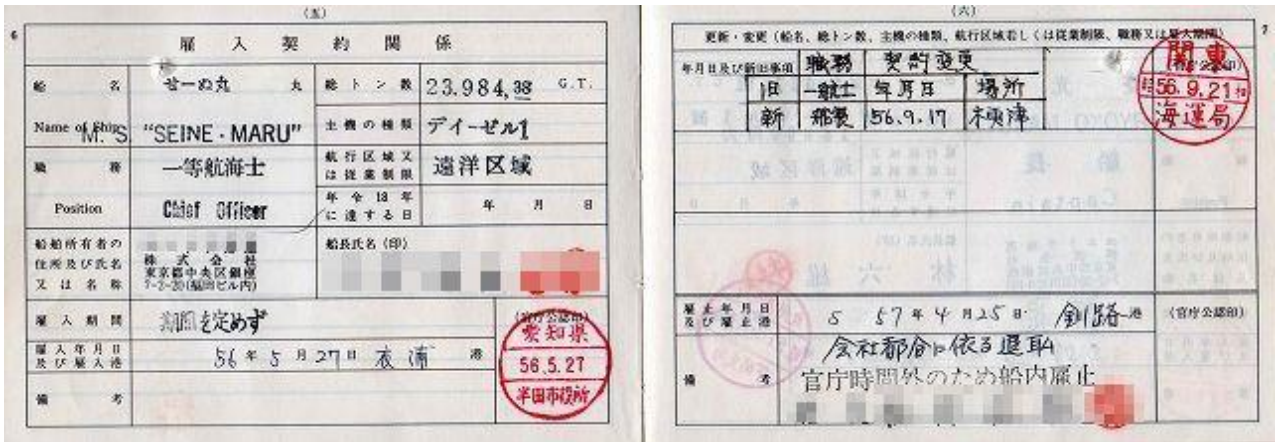 (五)
6
雇入契約関係
船名 せーぬ丸 丸 総トン数 23.984,38 G.T.
Name of Ship M.S. "SEINE・MARU" 主機の種類 デイーゼル1
職務 一等航海士 航行区域又は従業制限 遠洋区域
Position Chief Officer 年令18年に達する日 年 月 日
船舶所有者の住所及び氏名又は名称
株式会社
東京都中央区銀座
7-2-20(福田ビル内)
船長氏名(印)
雇入期間 期間を定めず (官庁公認印)
雇入年月日及び雇入港 56年5月27日 衣浦 港
愛知県
56.5.27
半田市役所
備考
(六)
7
更新・変更(船名、総トン数、主機の種類、航行区域若しくは従業制限、職務又は雇入期間)
年月日及び新旧事項 職務 契約変更 (官庁公認印)
旧 一航士 年月日 場所
新 56.9.17 横津
関東
56.9.21
海運局
雇止年月日及び雇止港 S 57年4月25日 釧路 港 (官庁公認印)
備考
会社都合に依る退職
官庁時間外のため船内雇止